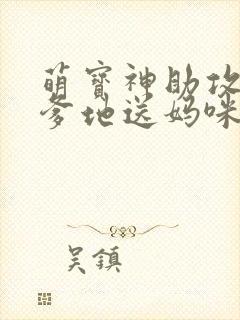 萌寶神助攻
爹地送媽咪
吳鎮